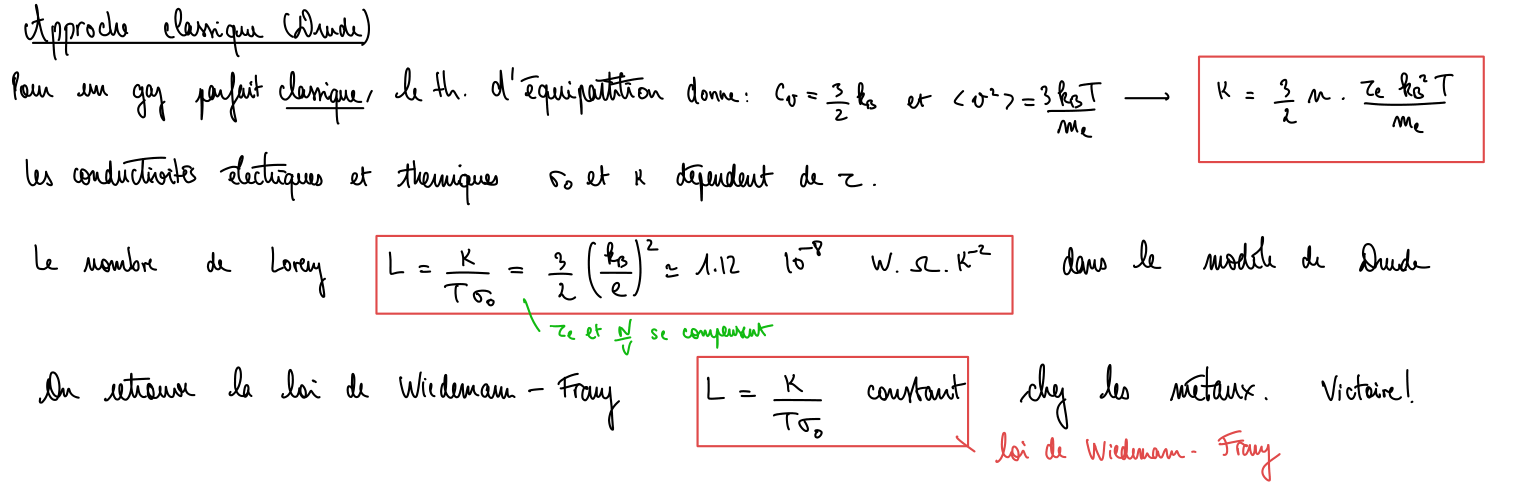 Approche classique (Drude)
Pour un gaz parfait classique, le th. d'équipartition donne : c_v = 3/2 k_B et <v²> = 3 k_B T / m_e → K = 3/2 n . τ_e k_B² T / m_e
Les conductivités électriques et thermiques σ_0 et K dépendent de τ.
Le nombre de Lorenz L = K / T σ_0 = 3/2 (k_B / e)² ≃ 1.12 10⁻⁸ W. Ω. K⁻² dans le modèle de Drude
τ_e et N/V se compensent
On retrouve la loi de Wiedemann - Franz L = K / T σ_0 constant chez les métaux. Victoire !
loi de Wiedemann - Franz